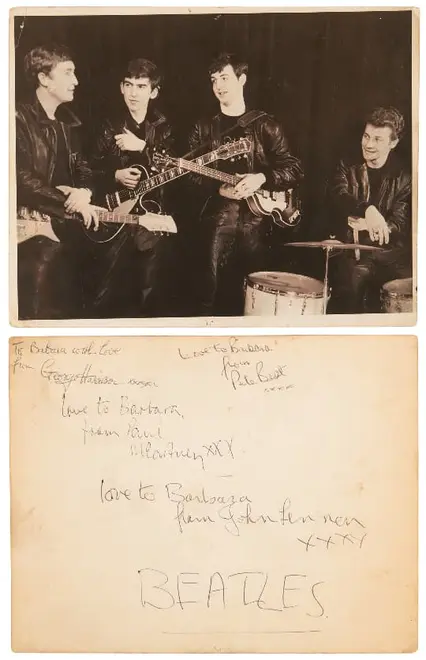 To Barbara with Love
from George Harrison xxxxx
Love to Barbara
from
Pete Best
xxxx
love to Barbara,
from Paul
McCartney XXX
love to Barbara
from John Lennon
XXXX
BEATLES